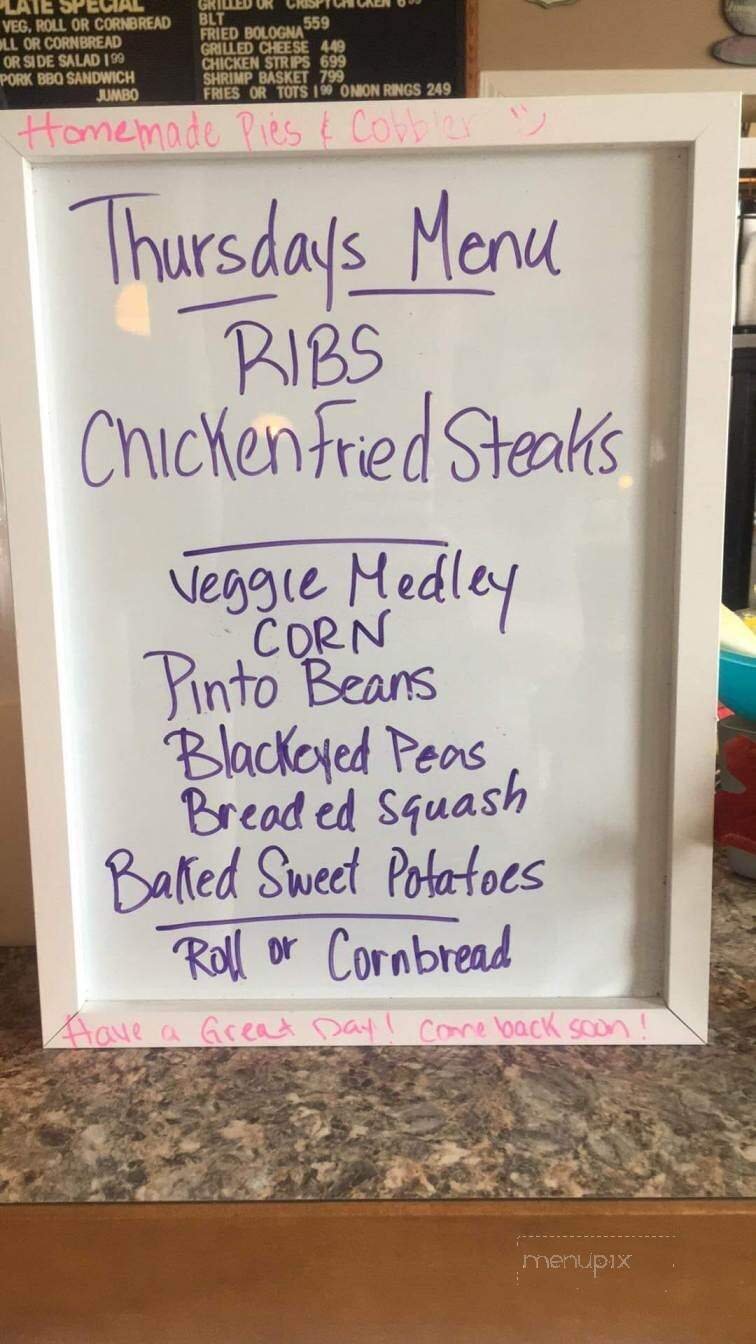 PLATE SPECIAL
VEG, ROLL OR CORNBREAD
ROLL OR CORNBREAD
OR SIDE SALAD 1 99
PORK BBQ SANDWICH
JUMBO
GRILLED OR CRISPY CHICKEN 6
BLT 559
FRIED BOLOGNA
GRILLED CHEESE 449
CHICKEN STRIPS 699
SHRIMP BASKET 799
FRIES OR TOTS 1 99 ONION RINGS 249
Homemade Pies & Cobbler
Thursdays Menu
RIBS
Chicken Fried Steaks
Veggie Medley
CORN
Pinto Beans
Blackeyed Peas
Breaded Squash
Baked Sweet Potatoes
Roll or Cornbread
Have a Great Day! Come back soon!
menupix